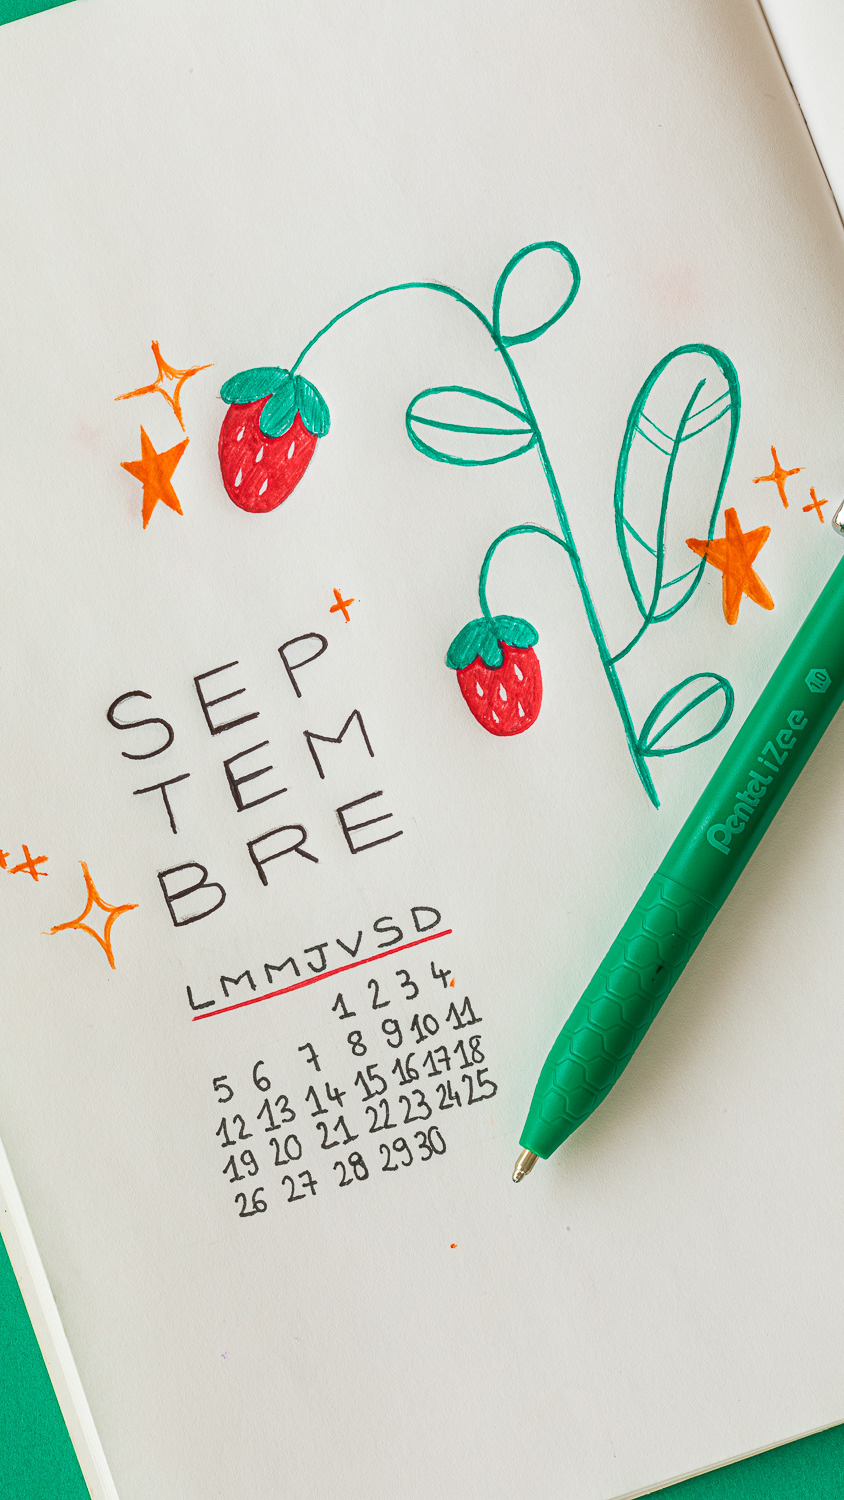 SEP
TEM
BRE
L M M J V S D
1 2 3 4
5 6 7 8 9 10 11
12 13 14 15 16 17 18
19 20 21 22 23 24 25
26 27 28 29 30
Pentel iZee 1.0